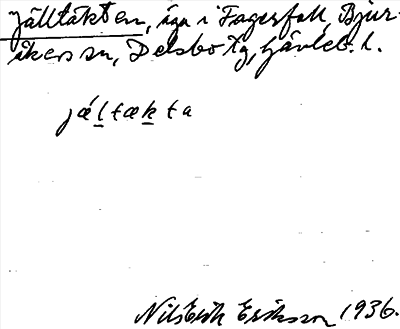 Jälltäkten, äga i Fagerfall, Bjur-
åkers sn, Delsbo tg, Gävleb. l.
jæltækta
Nils Erik Eriksson 1936.